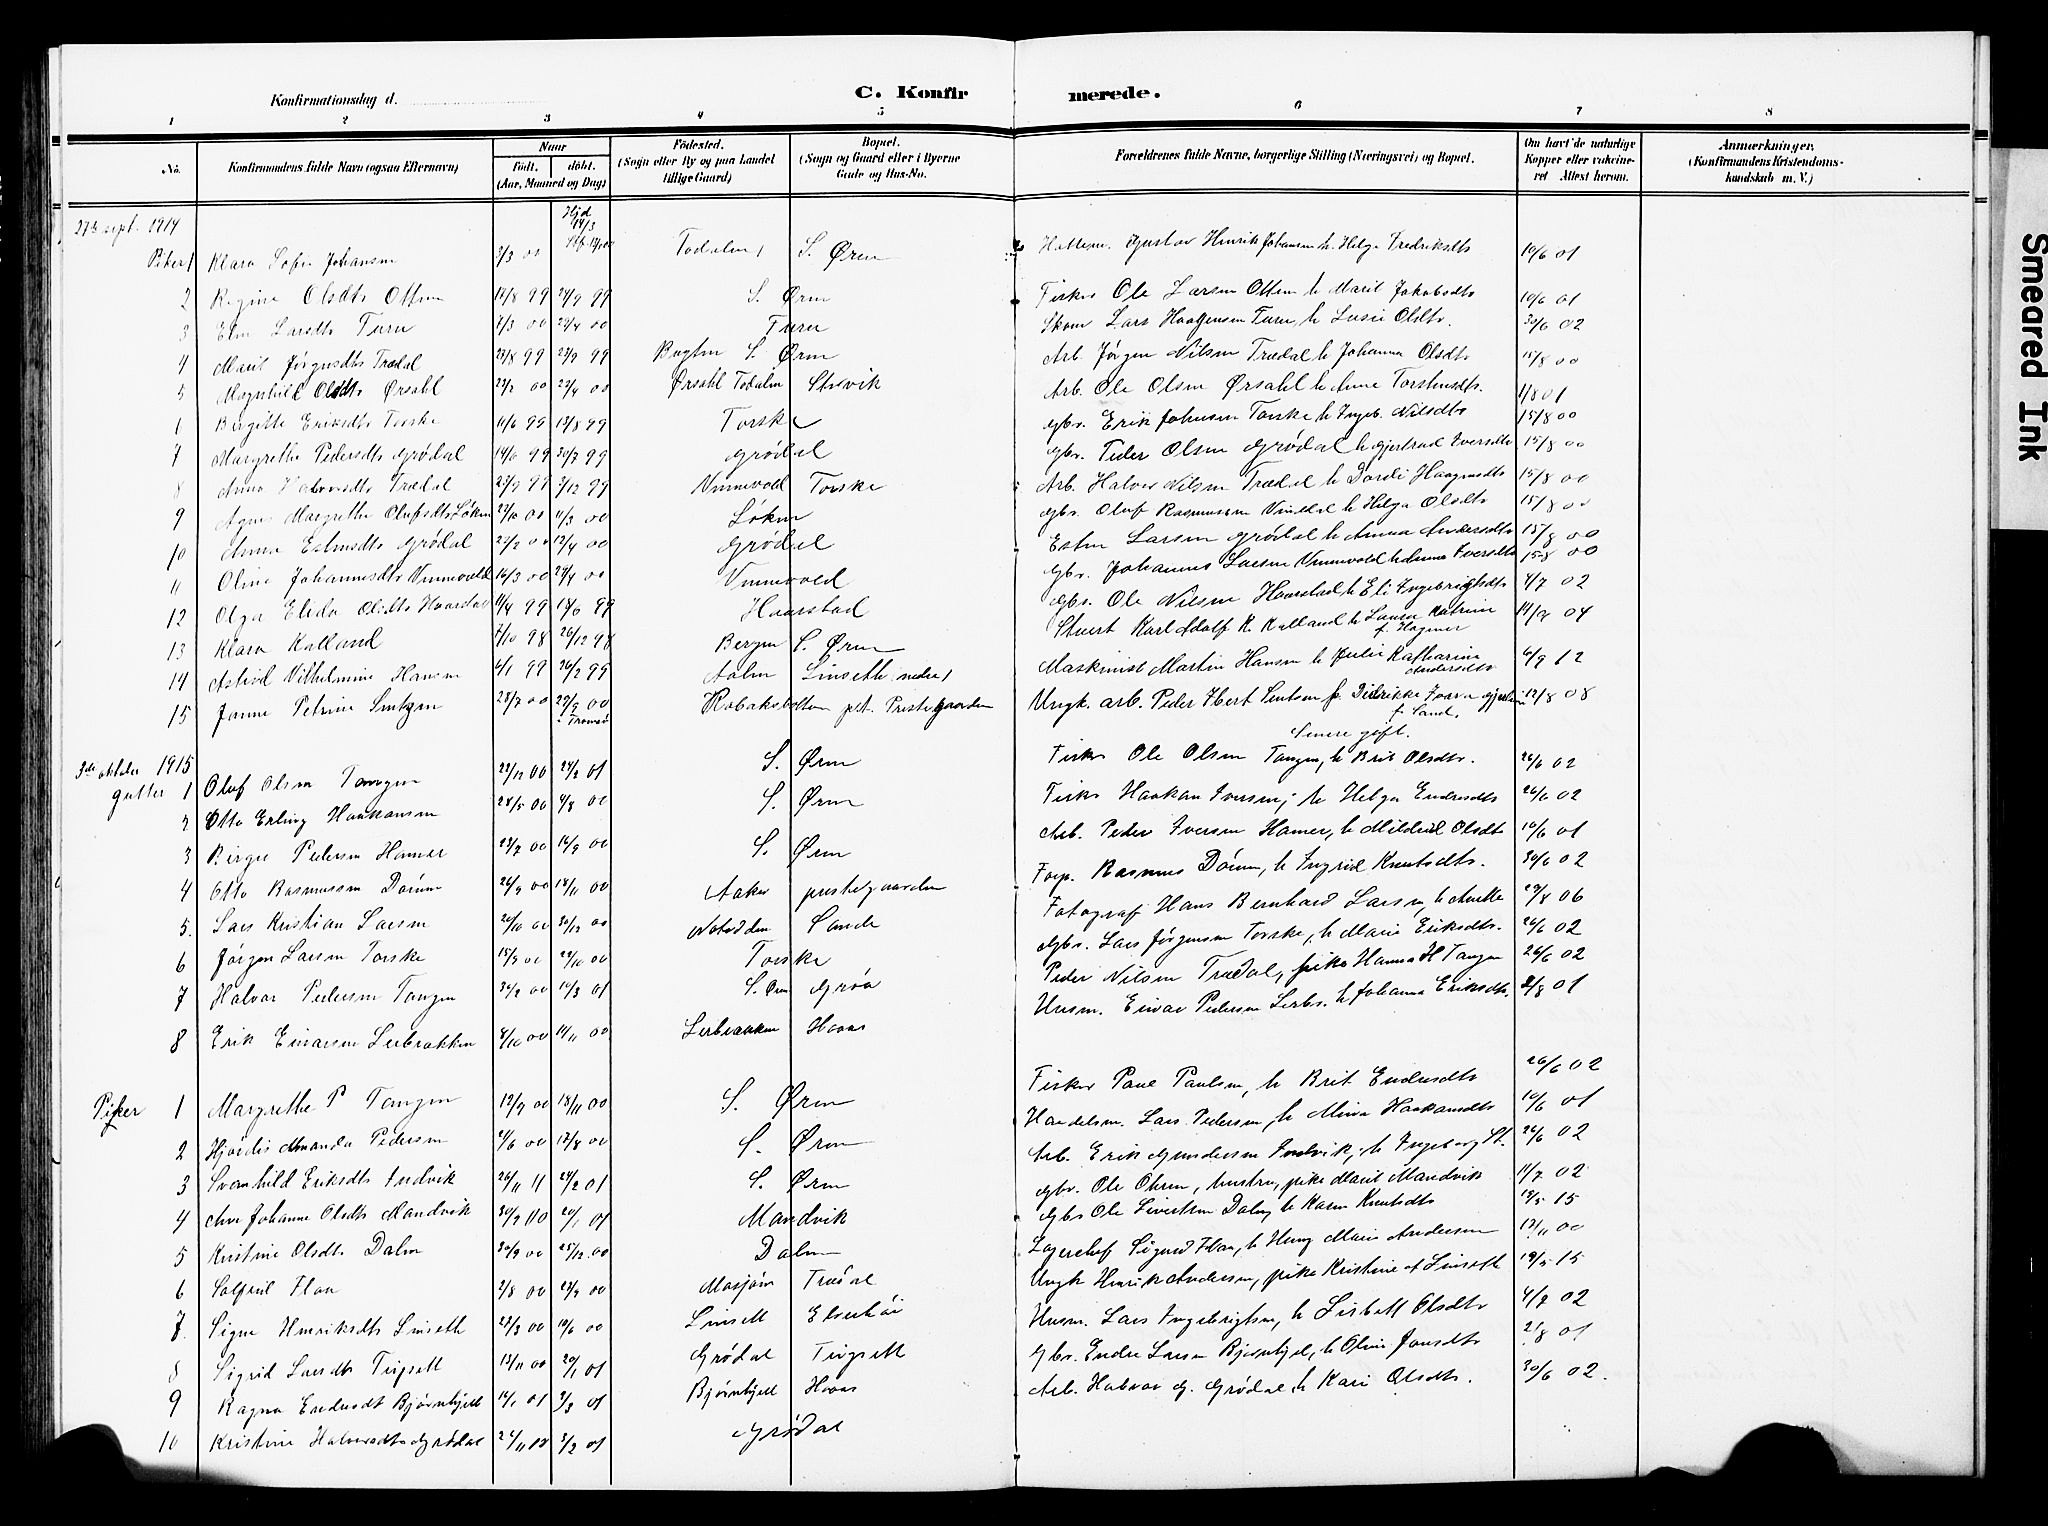 Konfirmationsdag d. C. Konfirmerede.
1 2 3 4 5 6 7 8
No. Konfirmandens fulde Navn (ogsaa Efternavn) Naar Født. døbt. (Aar, Maaned og Dag) Fødested. (Sogn eller By og paa Landet tillige Gaard) Bopæl. (Sogn og Gaard eller i Byerne Gade og Hus-No. Forældrenes fulde Navne, borgerlige Stilling (Næringsvei) og Bopæl. Om havt de naturlige Kopper eller vaccineret Attest herom. Anmærkninger. (Konfirmandens Kristendomskundskab m. V.)
27de sept. 1914
Piker 1 Klara Sofie Johansen 2/3 00 Todalen S. Øren Gustav Henrik Johansen h. Helga Fredriksdtr 10/6 01
2 Regine Olsdtr Ottem 18/8 99 24/9 99 S. Øren Fisker Ole Larsen Ottem h. Marit Jakobsdtr 10/6 01
3 Larsdtr Furu 7/3 00 22/4 00 Furu Skom. Lars Haagensen Furu, h. Olsdtr. 30/6 02
4 Marit Jørgensdtr Trædal 23/8 99 23/9 99 S. Øren Arb. Jørgen Nilsen Trædal h. Johanna Olsdtr 15/8 00
5 Magnhild Olsdtr Ørsahl 22/2 00 22/4 00 Ørsahl Todalen Arb. Ole Olsen Ørsahl h. Anne Torstensdtr. 1/8 01
1 Birgitte Eriksdtr Torske 11/6 99 13/8 99 Torske Gbr. Erik Johnsen Torske h. Ingeb. Nilsdtr 15/8 00
7 Margrethe Pedersdtr Grødal 14/6 99 30/7 99 Grødal Gbr. Peder Olsen Grødal h. Gjertrud Iversdtr 15/8 00
8 Anna Halvorsdtr Trædal 23/9 99 3/12 99 Vinnevold Torske Arb. Halvor Nilsen Trædal h. Dordi Haagensdtr 15/8 00
9 Agnes Margrethe Olufsdtr Løken 27/10 00 11/3 00 Løken Gbr. Oluf Rasmussen h. Helga Olsdtr 15/8 00
10 Anna Estensdtr Grødal 22/2 00 12/4 00 Grødal Esten Larsen Grødal h. Anna Andersdtr 15/8 00
11 Oline Johannesdtr Vinnevold 16/3 00 22/4 00 Vinnevold Gbr. Johannes Larsen Vinnevold h. Anna Iversdtr 15/8 00
12 Olga Elida Olsdtr Haarstad 11/4 99 18/6 99 Haarstad Gbr. Ole Nilsen Haarstad h. Eli Ingebrigtsdtr 4/7 02
13 Klara Kalland 7/10 98 26/12 98 Bergen S. Øren Stuert Karl Adolf K. Kalland h. Laura Katrine f. Hagmer 04
14 Astrid Vilhelmine Hansen 6/1 99 26/2 99 Aalen Linseth nedre Maskinist Martin Hansen h. Julie Katharina Andersdtr 6/9 12
15 Janne Petrine 23/7 00 29/9 00 i Tromsø pst. Prestegaarden Ungk. arb. Peder p. Didrikke f. Sand. 12/8 08
Senere gift.
3de oktober 1915
Gutter 1 Oluf Olsen Tangen 22/12 00 24/2 01 S. Øren Fisker Ole Olsen Tangen, h. Brit Olsdtr. 26/6 02
2 Otto Erling Haakansen 28/5 00 4/8 00 S. Øren Fisker Haakan Iversen, h. Helga Endresdtr 26/6 02
3 Birger Pedersen Hammer 23/7 00 16/9 00 S. Øren Arb. Peder Iversen Hamer, h. Mildrid Olsdtr 10/6 01
4 Otto Rasmussen Dørum 26/9 00 14/11 00 Aaker prestegaarden Forp. Rasmus Dörum, h. Ingrid Knutsdtr. 30/6 02
5. Lars Kristian Larsen 20/10 00 30/12 00 Notodden Sande Fotograf Hans Bernhard Larsen, h. 29/8 06
6 Jørgen Larsen Torske 15/9 00 28/10 00 Torske Gbr. Lars Jørgensen Torske, h. Marie Eriksdtr. 26/6 02
7 Halvar Pedersen Tangen 30/2 00 10/3 01 S. Øren Grøa Peder Nilsen Trædal, pike Hanna H Tangen 26/6 02
8 Erik Einarsen Lerbrækken 4/10 00 11/11 00 Lerbrækken Hoaas Husm. Einar Pedersen Lerbr. h. Johanna Eriksdtr. 2/8 01
Piker 1 Margrethe P Tangen 12/9 00 18/11 00 S. Øren Fisker Paul Paulsen, h. Brit Endresdtr 26/6 02
2 Hjørdis Amanda Pedersen 2/6 00 12/8 00 S. Øren Handelsm. Lars Pedersen, h. Mina Haakansdtr 10/6 01
3 Svanhild Eriksdtr Indvik 26/11 11 24/2 01 S. Øren Arb. Erik Gundersen Indvik, h. Ingeborg St. 26/6 02
4 Ane Johanne Olsdtr Mandvik 30/9 10 20/1 01 Mandvik Gbr. Ole Ohren, hustru, pike Marit Mandvik 11/7 02
5 Kristine Olsdtr. Dalen 30/9 00 25/12 00 Dalen Gbr Ole Sivertsen Dalen, h. Karen Knutsdtr 19/5 15
6 Solfrid Floan 2/8 00 23/9 00 Mosjøen Trædal Lagerchef Sigurd Floan, h. Henny Marie Andersen 13/11 00
7. Signe Henriksdtr Linseth 22/3 00 10/6 00 Linsett Elsethøi Ungk Henrik Andersen, pike Kristine Linseth 19/5 15
8 Sigrid Larsdtr Tripsett 13/11 00 20/1 01 Grødal Tripsett Husm. Lars Ingebrigtsen, h. Lisbett Olsdtr 4/7 02
9 Ragna Endresdt Bjørnhjell 14/1 01 3/3 01 Bjørnhjell Hoaas Gbr. Endre Larsen Bjørnhjel, h. Oline Jonsdtr 2/8 01
10 Kristine Halvorsdtr Grødal 24/11 10 3/2 01 Grødal Arb. Halvor G. Grødal h. Kari Olsdtr. 30/6 02.
Smeared Ink